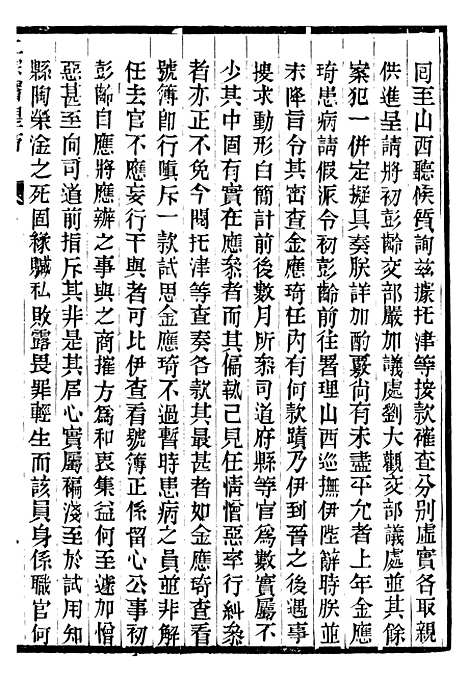 同至山西聽候質詢茲據托津等按款確查分別虛實各取親
供進呈請將初彭齡交部嚴加議處劉大觀交部議處並其餘
案犯一併定擬具奏朕詳加酌覈尚有未盡平允者上年金應
琦患病請假派令初彭齡前往署理山西巡撫伊陛辭時朕並
未降旨令其密查金應琦任內有何款蹟乃伊到晉後遇事
搜求動形白簡計前後數月所叅司道府縣等官爲數實屬不
少其中固有實在應叅者而其偏執己見任情憎惡率行糾叅
者亦正不免今閱托津等查奏各款其最甚者如金應琦查看
號簿卽行嗔斥一款試思金應琦不過暫時患病之員並非解
任去官不應妄行干與者可比伊查看號簿正係留心公事初
彭齡自應將應辦之事與之商搉方爲和衷集益何至遽加憎
惡甚至向司道前指斥其非是其居心實屬褊淺至於試用知
縣陶榮淦之死固緣贓私敗露畏罪輕生而該員身係職官何